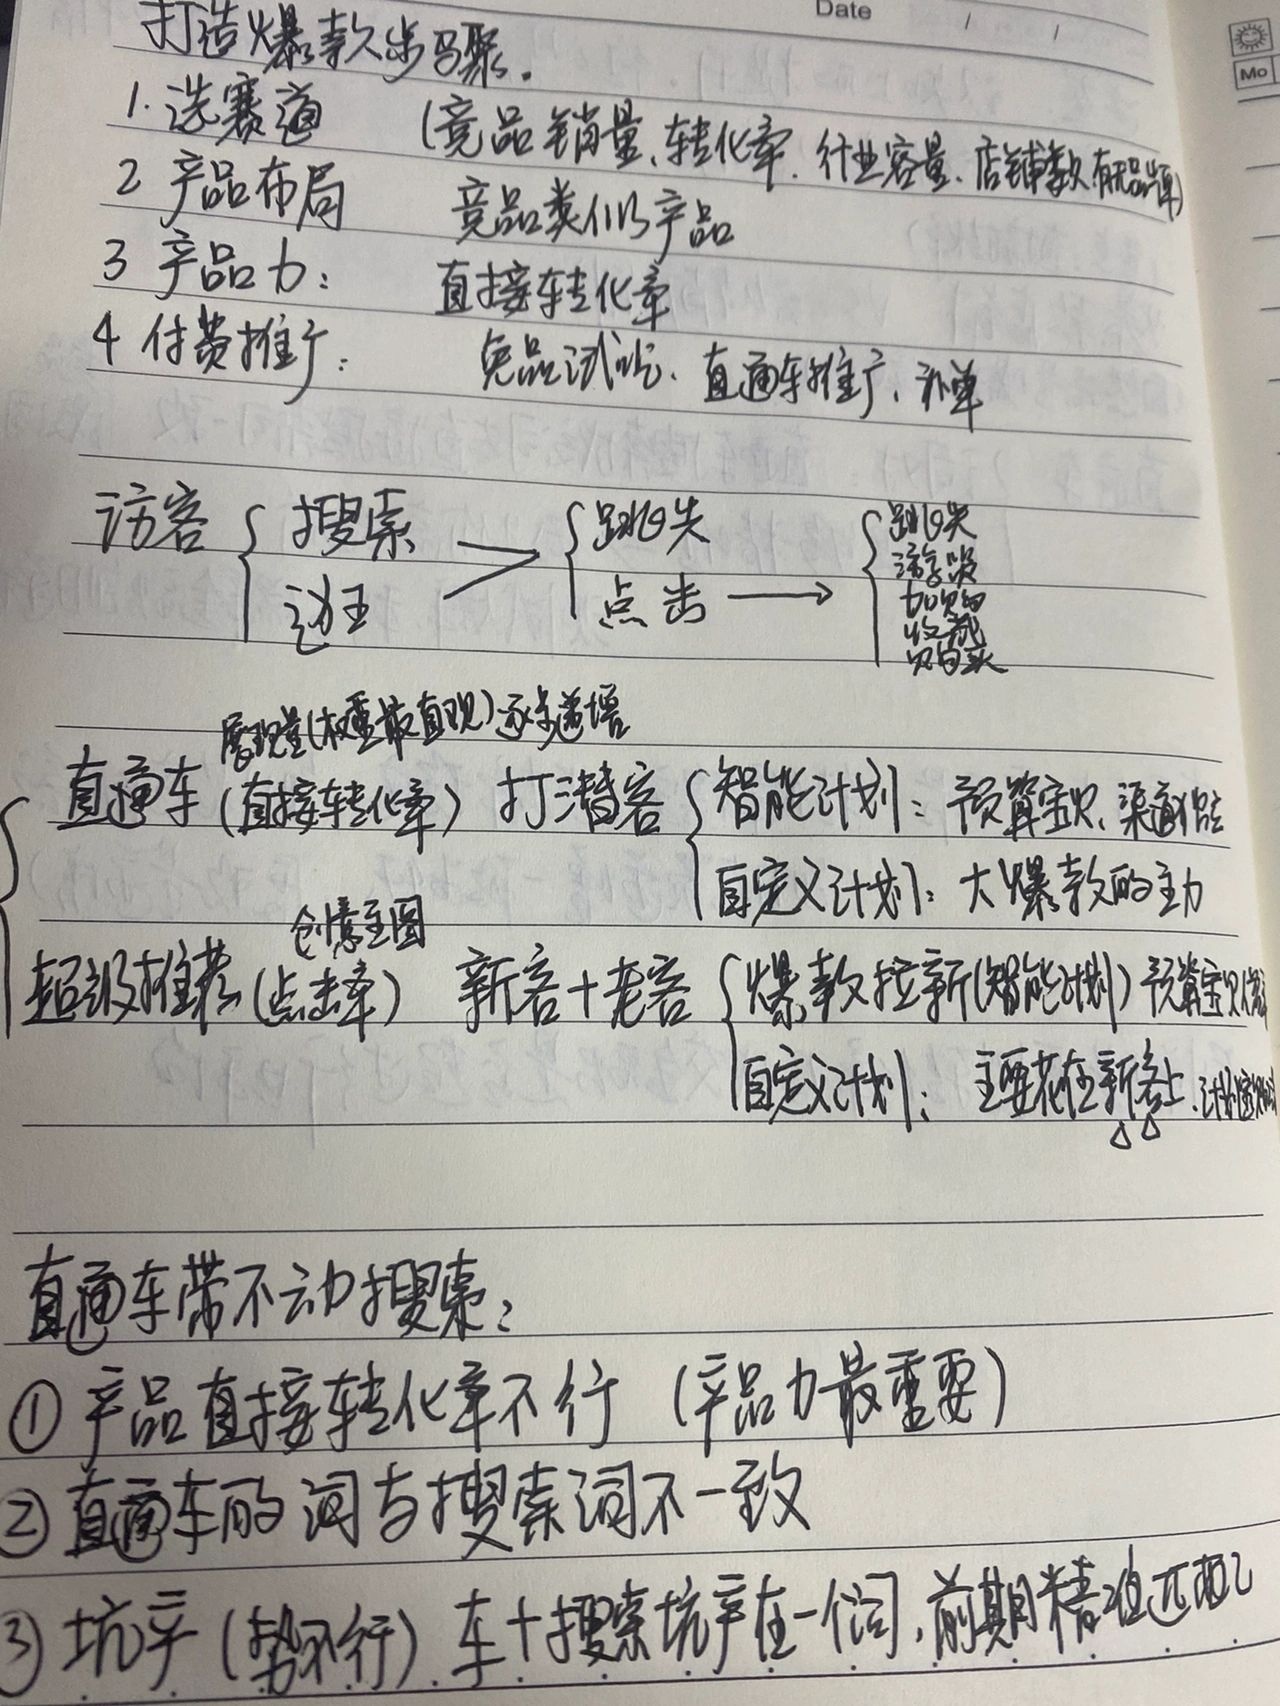 Date / /
Mo
打造爆款步骤.
1.选赛道 (竞品销量、转化率、行业容量、店铺数、有无品牌)
2 产品布局 竞品类似产品
3 产品力: 直接转化率
4 付费推广: 免品试吃、直通车推广、补单
访客 搜索 跳失 跳失
浏览
加购
逛 点击 收藏
购买
展现量(权重最直观)逐步递增
直通车(直接转化率) 打潜客 智能计划: 预算宝贝、渠道
自定义计划: 大爆款的主力
创意主图
超级推荐(点击率) 新客+老客 爆款拉新(智能计划) 预算宝贝
自定义计划: 主要花在新客上.
直通车带不动搜索:
① 产品直接转化率不行 (产品力最重要)
② 直通车的词与搜索词不一致
③ 坑产(势不行). 车+搜索坑产在一个词,前期精准匹配